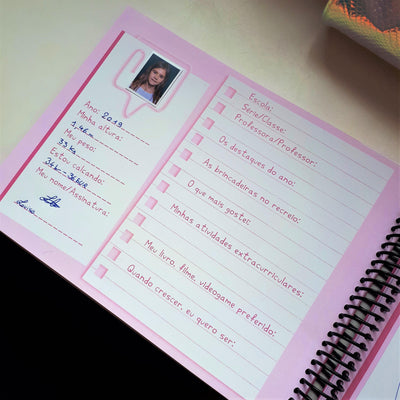 Ano: 2019
Minha altura:
1,46m
Meu peso:
33 Kg
Estou calçando:
34br = 36EUR
Meu nome/Assinatura:
Escola:
Série/Classe:
Professora/Professor:
Os destaques do ano:
As brincadeiras no recreio:
O que mais gostei:
Minhas atividades extracurriculares:
Meu livro, filme, videogame preferido:
Quando crescer, eu quero ser: